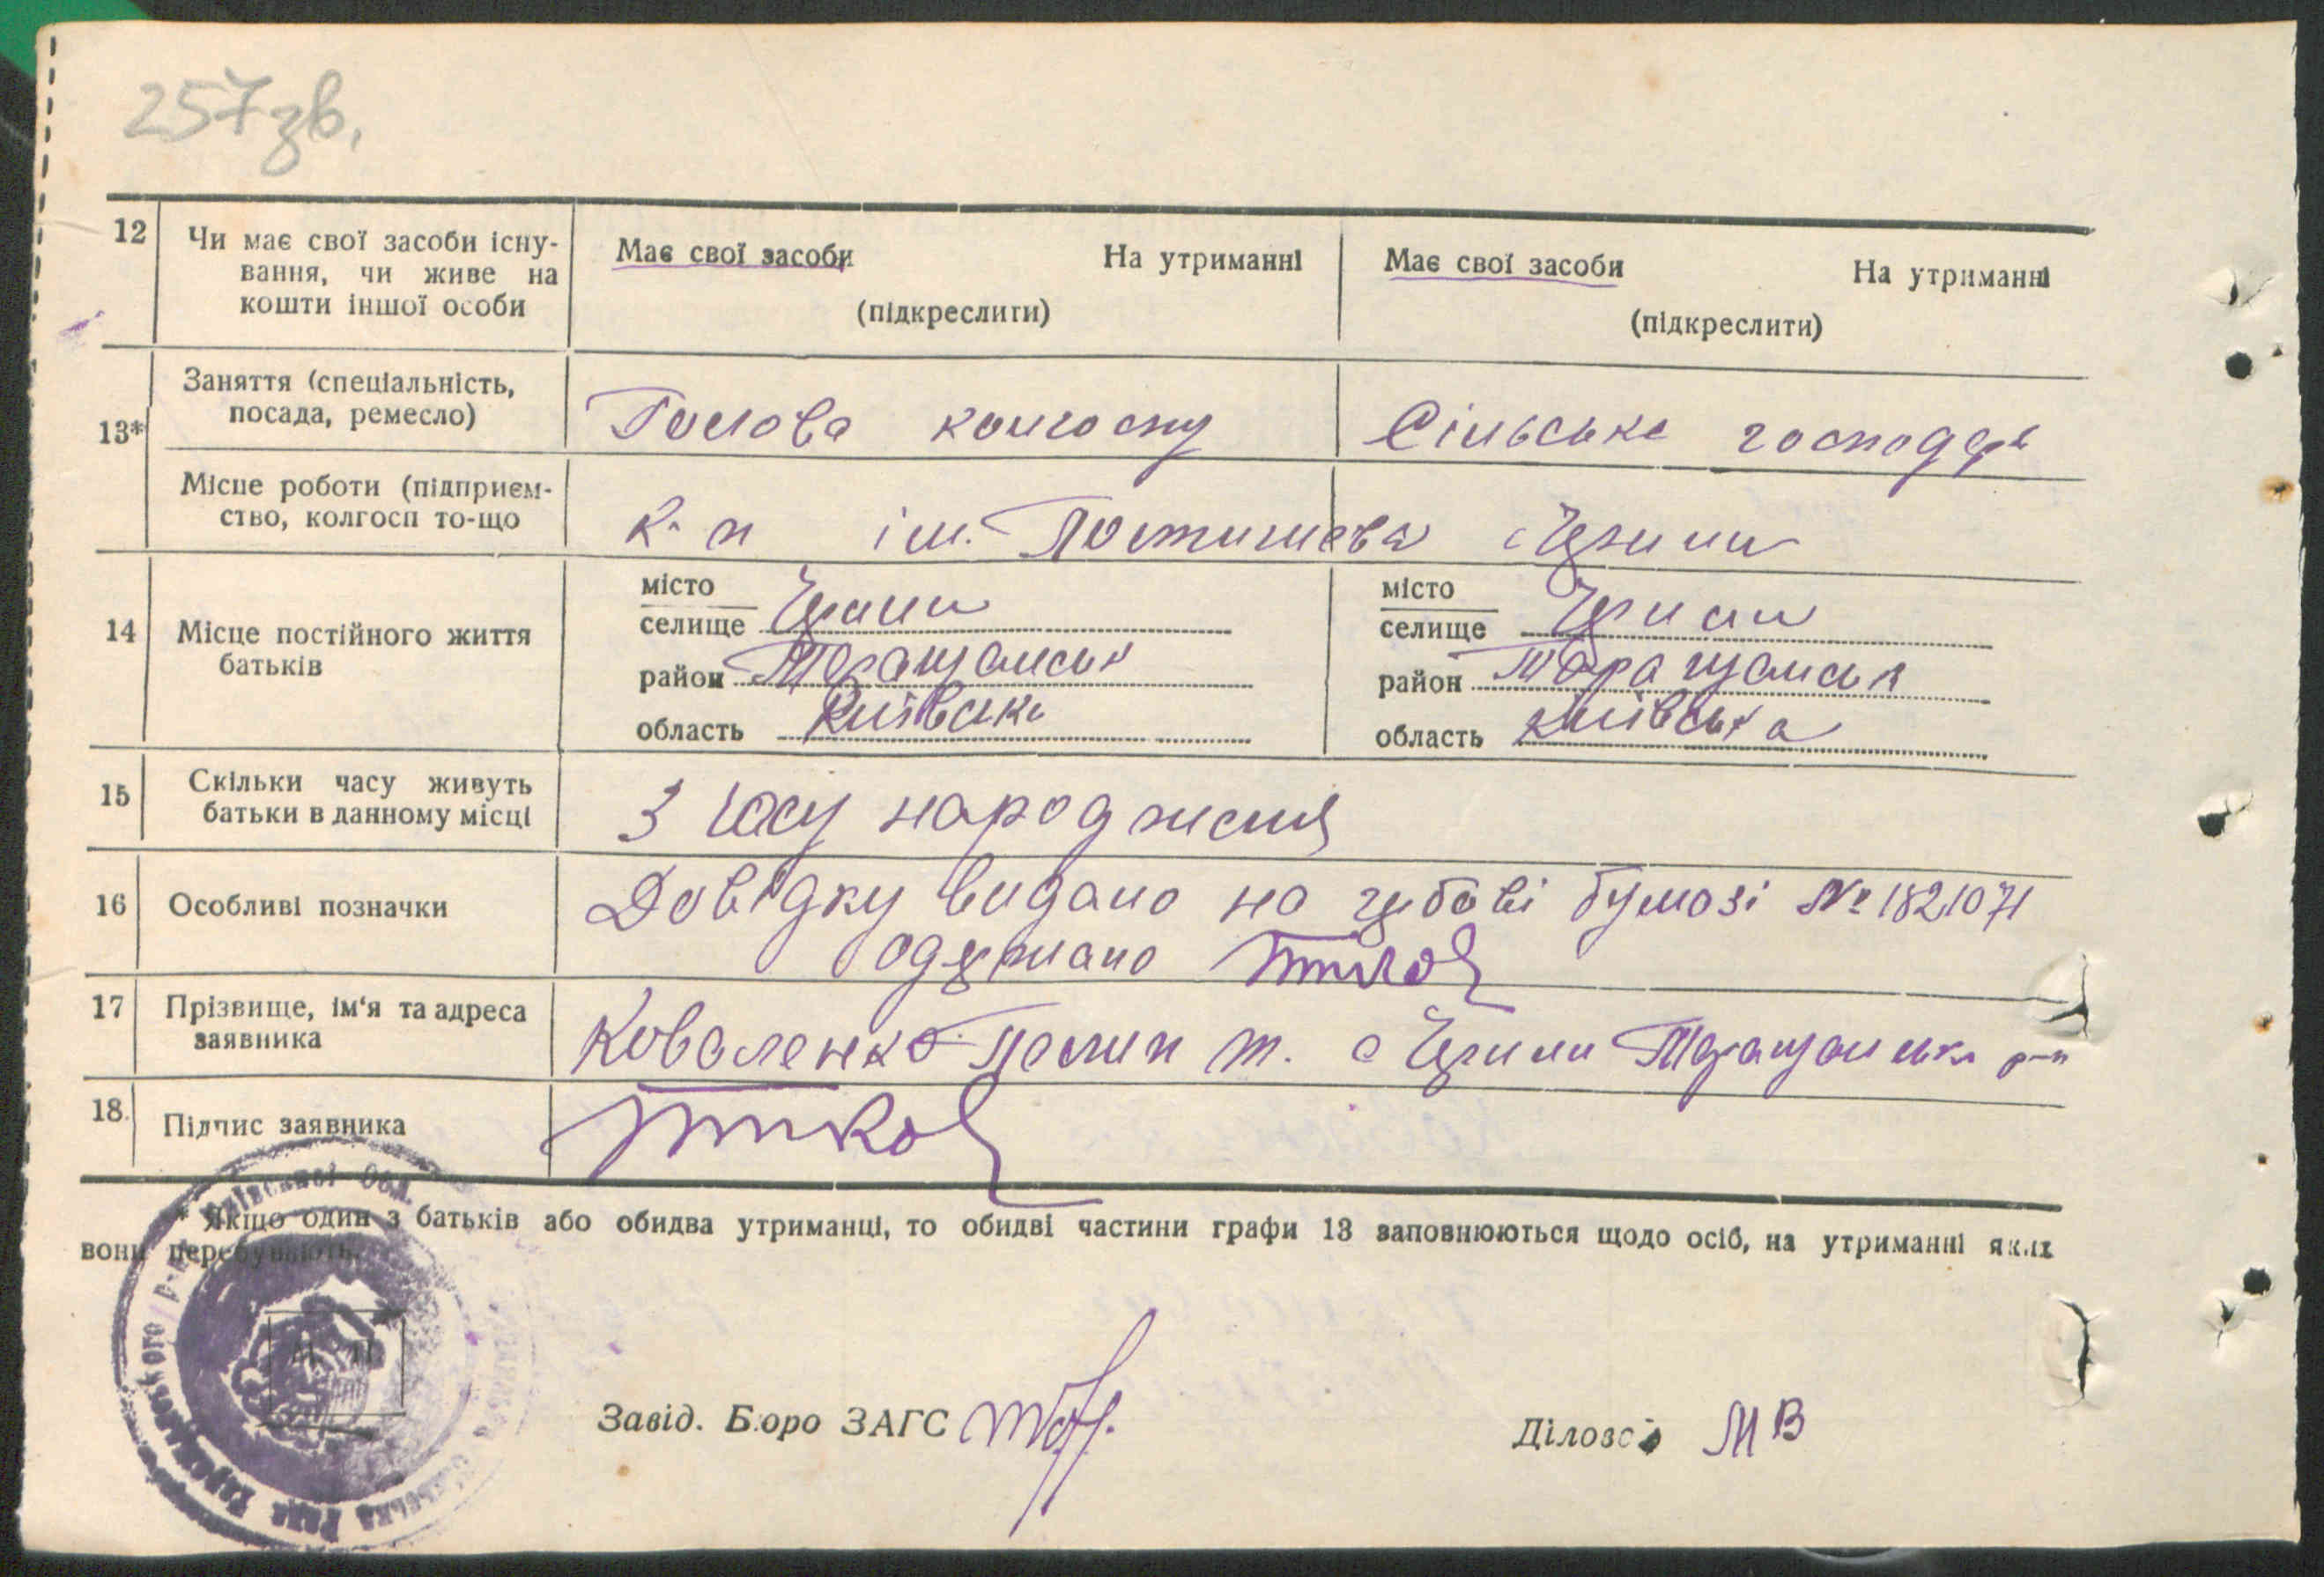 257 зв.
12
Чи має свої засоби існу-
вання, чи живе на
кошти іншої особи
Має свої засоби На утриманні
(підкреслити)
Має свої засоби На утриманні
(підкреслити)
13*
Заняття (спеціальність,
посада, ремесло)
Голова колгоспу
Сільське господар
Місце роботи (підприєм-
ство, колгосп то-що
К-п ім. Постишева с
14
Місце постійного життя
батьків
місто
селище
район Таращанськ
область Київська
місто
селище
район Таращанськ
область Київська
15
Скільки часу живуть
батьки в данному місці
З часу народження
16
Особливі позначки
Довідку видано на гербові бумозі № 1821071
одержано
17
Прізвище, ім'я та адреса
заявника
Коваленко т. с р-н
18.
Підпис заявника
* Якщо один з батьків або обидва утриманці, то обидві частини графи 13 заповнюються щодо осіб, на утриманні яких
вони перебувають.
Київської Обл.
Сільська Рада Таращанського р-ну
М. П.
Завід. Бюро ЗАГС
Діловод МВ